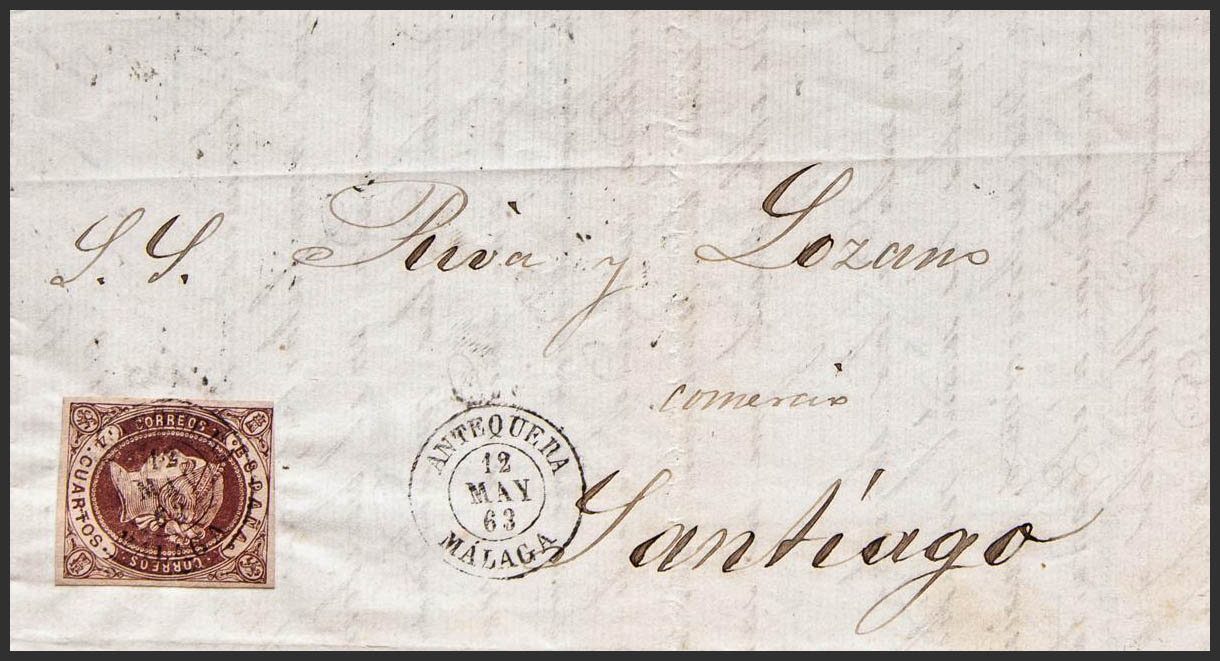 S. S. Riva y Lozano
comercio
Santiago
ANTEQUERA
12
MAY
63
MÁLAGA
CORREOS
ESPAÑA
4 CUARTOS
CORREOS
12